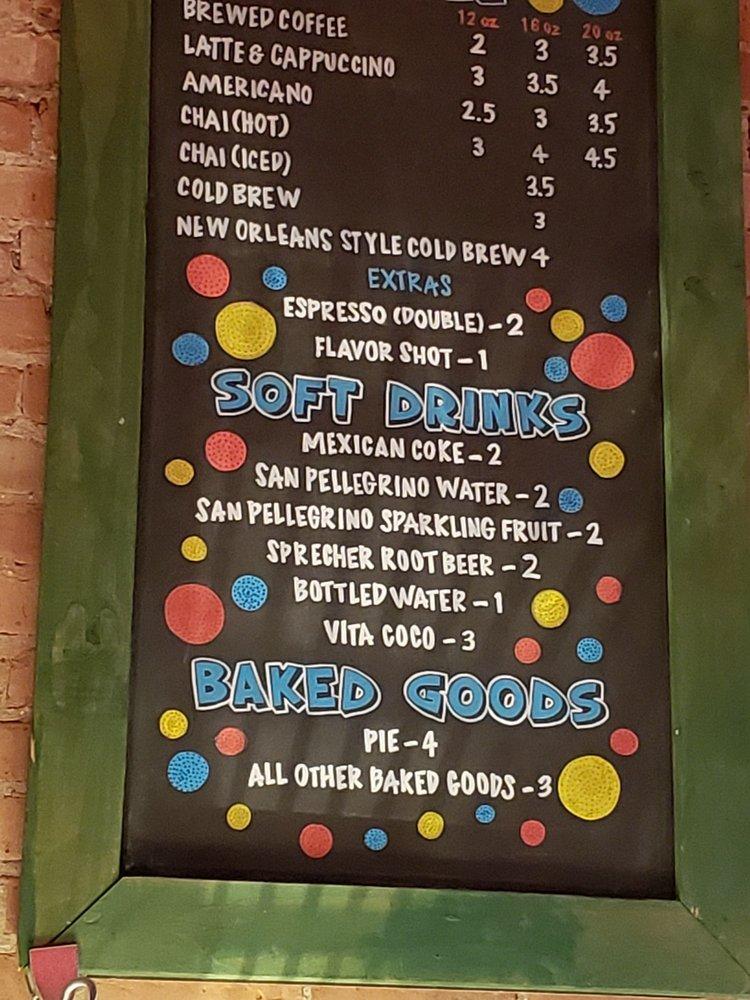 12 oz 16 oz 20 oz
BREWED COFFEE 2 3 3.5
LATTE & CAPPUCCINO 3 3.5 4
AMERICANO 2.5 3 3.5
CHAI (HOT) 3 4 4.5
CHAI (ICED) 3.5
COLD BREW 3
NEW ORLEANS STYLE COLD BREW 4
EXTRAS
ESPRESSO (DOUBLE) - 2
FLAVOR SHOT - 1
SOFT DRINKS
MEXICAN COKE - 2
SAN PELLEGRINO WATER - 2
SAN PELLEGRINO SPARKLING FRUIT - 2
SPRECHER ROOT BEER - 2
BOTTLED WATER - 1
VITA COCO - 3
BAKED GOODS
PIE - 4
ALL OTHER BAKED GOODS - 3